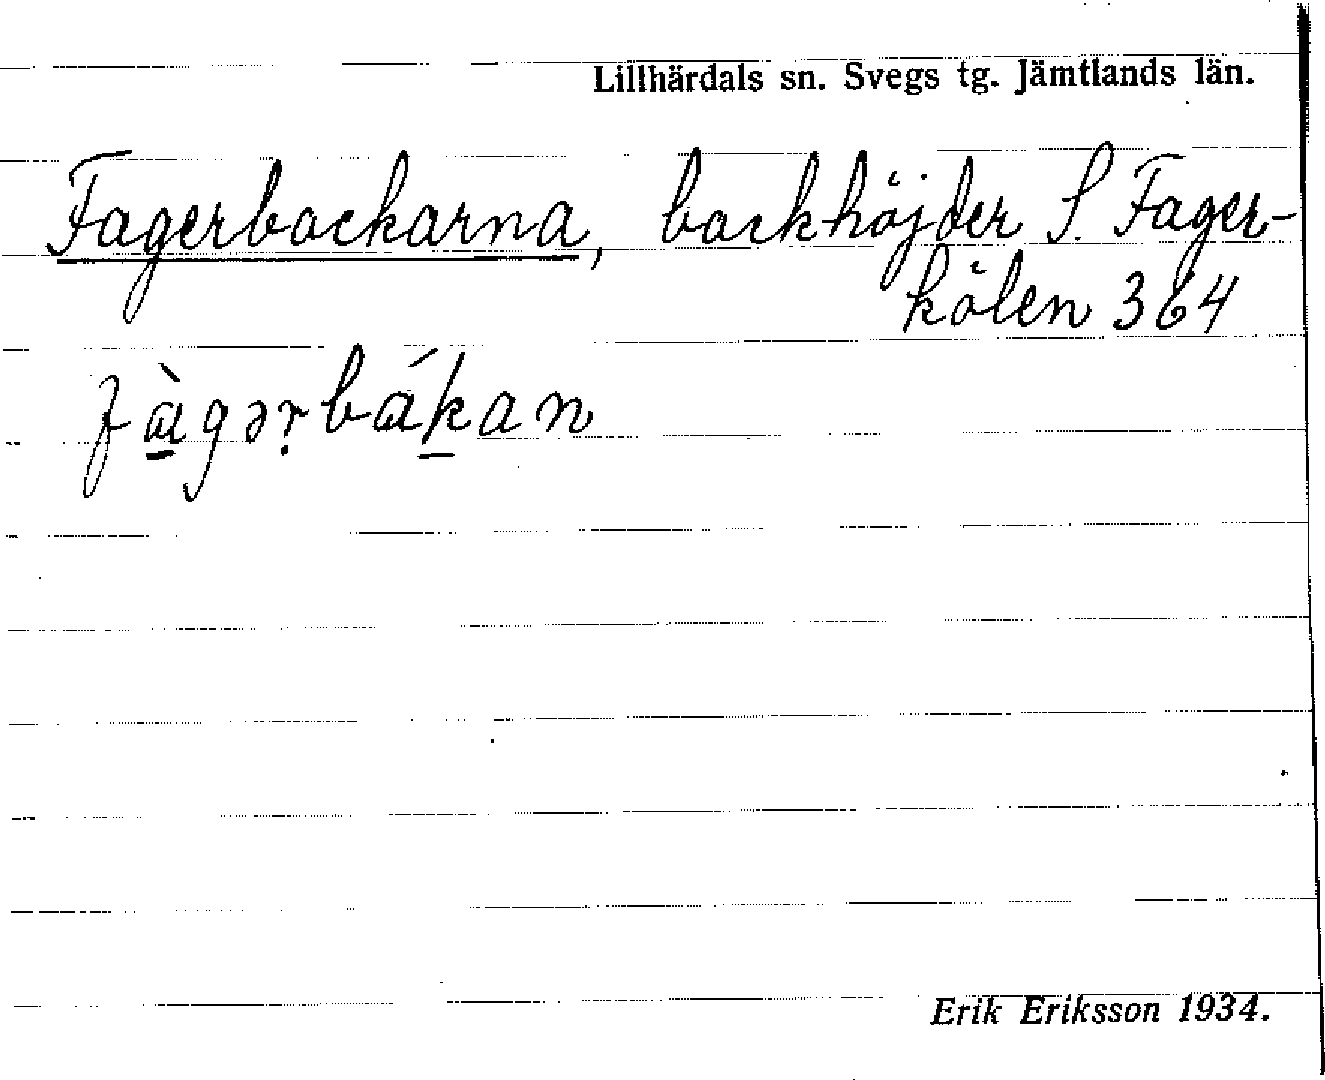 Lillhärdals sn. Svegs tg. Jämtlands län.
Fagerbackarna, backhöjder S. Fager-
kölen 364
fàgərbákan
Erik Eriksson 1934.